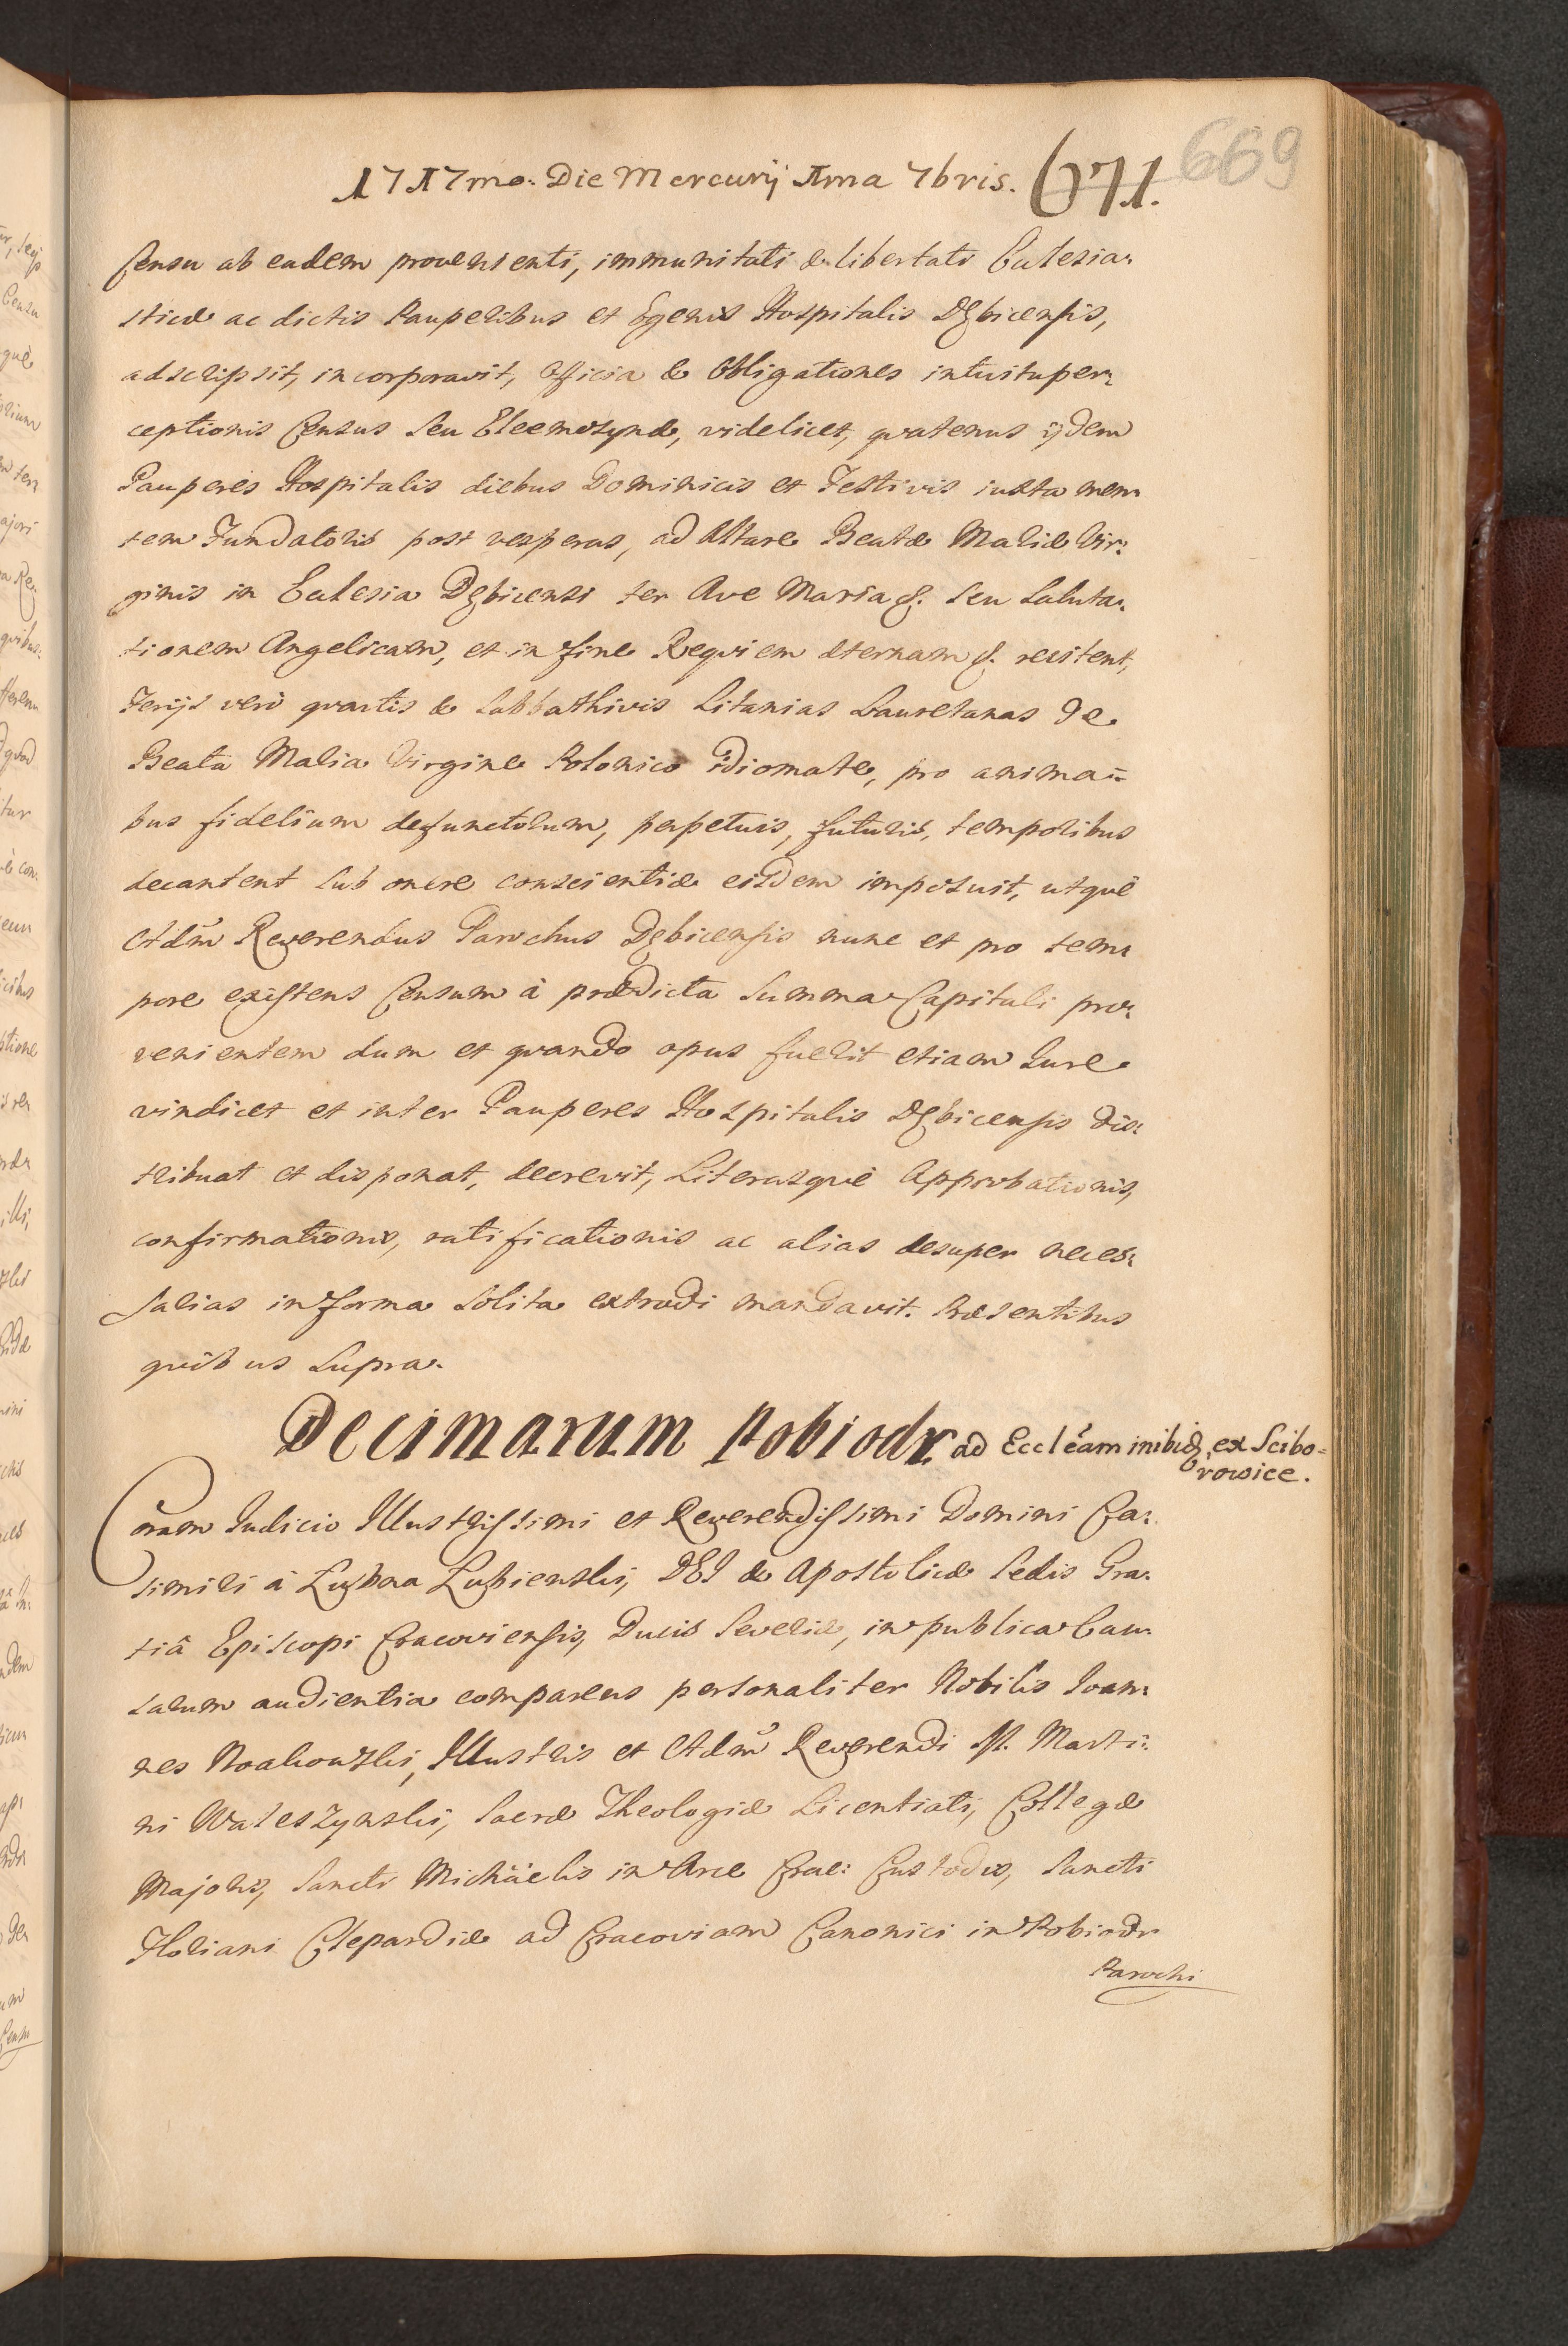 1717mo. Die Mercurij 1ma 7bris. 671. 669
Censu ab eadem provenienti, immunitati & libertati Eclesia-
sticæ ac dictis Pauperibus et Egenis Hospitalis Dębicensis,
adscripsit, incorporavit, Officia & Obligationes intuitu per-
ceptionis Census seu Eleemosynæ, videlicet, quatenus ijdem
Pauperes Hospitalis diebus Dominicis et Festivis iuxta men-
tem Fundatoris post vesperas, ad Altare Beatæ Mariæ Vir-
ginis in Eclesia Dębicensi ter Ave Maria &. seu Saluta-
tionem Angelicam, et in fine Requiem æternam &. recitent,
Ferijs verò quartis & Sabbathivis Litanias Lauretanas de
Beata Maria Virgine Polonico idiomate, pro anima-
bus fidelium defunctorum, perpetuis, futuris, temporibus
decantent sub onere conscientiæ eisdem imposuit, utquè
Adm̃ Reverendus Parochus Dębicensis nunc et pro tem-
pore existens Censum à prædicta Summa Capitali pro-
venientem dum et quando opus fuerit etiam Iure
vindicet et inter Pauperes Hospitalis Dębicensis dis-
tribuat et disponat, decrevit, Literasquè Approbationis,
confirmationis, ratificationis ac alias desuper neces-
sarias in forma solita extradi mandavit. Præsentibus
quibus supra.
Decimarum Pobiedr. ad Eccl̃eam inibiq; ex Scibo-
rowice.
Coram Iudicio Illustrissimi et Reverendissimi Domini Ca-
simiri à Łubna Łubienski, DEI & Apostolicæ Sedis Gra-
tiâ Episcopi Cracoviensis, Ducis Severiæ, in publica Cau-
sarum audientia comparens personaliter Nobilis Ioan-
nes Illustris et Adm̃ Reverendi M. Marti-
ni Waleszynski, Sacræ Theologiæ Licentiati, Collegæ
Majoris, Sancti Michäelis in Arce Crac: Custodis, Sancti
Floriani Clepardiæ ad Cracoviam Canonici in Pobiedr
Parochi